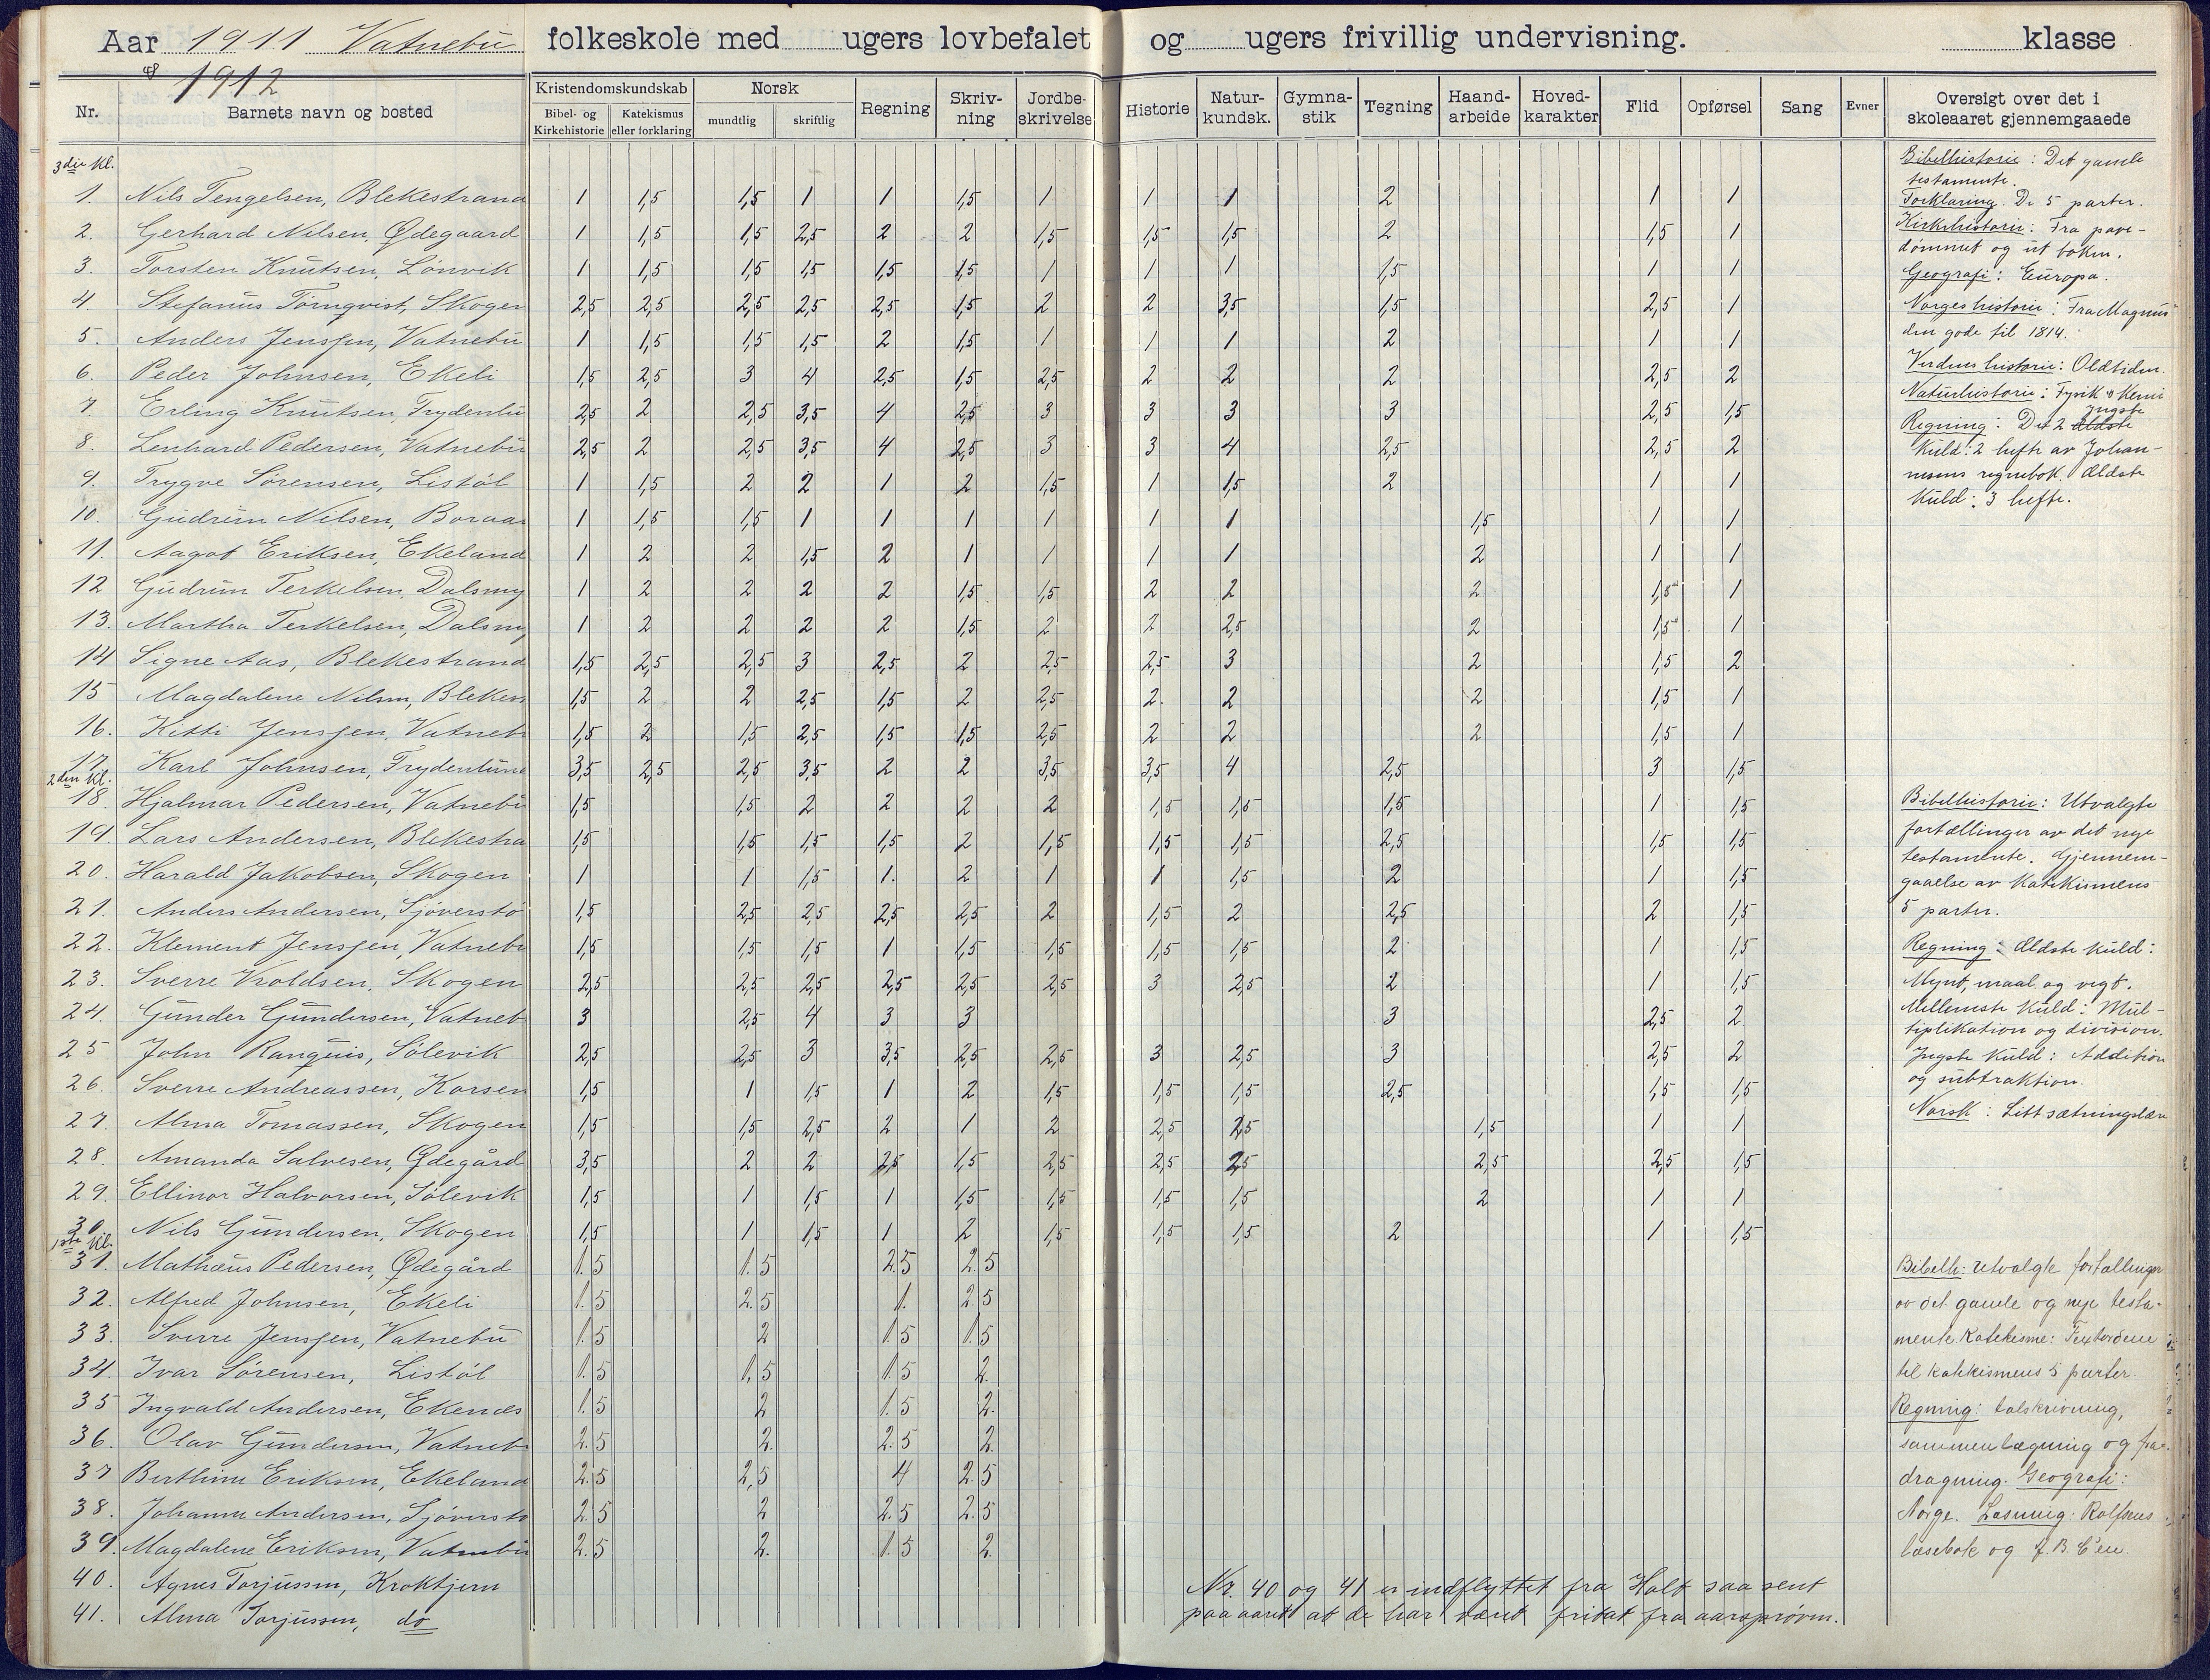 Aar 1911 Vatnebu folkeskole med ugers lovbefalet og ugers frivillig undervisning. klasse
og 1912
Nr. Barnets navn og bosted Kristendomskundskab Bibel- og Kirkehistorie Katekismus eller forklaring Norsk mundtlig skriftlig Regning Skriv-ning Jordbe-skrivelse Historie Natur-kundsk. Gymna-stik Tegning Haand-arbeide Hoved-karakter Flid Opførsel Sang Evner Oversigt over det i skoleaaret gjennemgaaede
3die Kl.
1. Nils Tengelsen, Blekestrand 1 1,5 1,5 1 1 1,5 1 1 1 2 1 1
2. Gerhard Nilsen, Ødegaard 1 1,5 1,5 2,5 2 2 1,5 1,5 1,5 2 1,5 1
3. Torsten Knutsen, Lønvik 1 1,5 1,5 1,5 1,5 1,5 1 1 1 1,5 1 1
4. Stefanus Törnqvist, Skogen 2,5 2,5 2,5 2,5 2,5 1,5 2 2 3,5 1,5 2,5 1
5. Anders Jensen, Vatnebu 1 1,5 1,5 1,5 2 1,5 1 1 1 2 1 1
6. Peder Johnsen, Ekeli 1,5 2,5 3 4 2,5 1,5 2,5 2 2 2 2,5 2
7. Erling Knutsen, Frydenlu 2,5 2 2,5 3,5 4 2,5 3 3 3 3 2,5 1,5
8. Lenhard Pedersen, Vatnebu 2,5 2 2,5 3,5 4 2,5 3 3 4 2,5 2,5 2
9. Trygve Sørensen, Listöl 1 1,5 2 2 1 2 1,5 1 1,5 2 1 1
10. Gudrun Nilsen, Boraas 1 1,5 1,5 1 1 1 1 1 1 1,5 1 1
11. Aagot Eriksen, Ekeland 1 2 2 1,5 2 1 1 1 1 2 1 1
12 Gudrun Terkelsen, Dalsmy 1 2 2 2 2 1,5 1,5 2 2 2 1,5 1
13. Martha Terkelsen, Dalsmy 1 2 2 2 2 1,5 2 2 2,5 2 1,5 1
14 Signe Aas, Blekestrand 1,5 2,5 2,5 3 2,5 2 2,5 2,5 3 2 1,5 2
15 Magdalene Nilsen, Blekes 1,5 2 2 2,5 1,5 2 2,5 2 2 2 1,5 1
16. Kitti Jensen, Vatneb 1,5 2 1,5 2,5 1,5 1,5 2,5 2 2 2 1,5 1
17. Karl Johnsen, Frydenlund 3,5 2,5 2,5 3,5 2 2 3,5 3,5 4 2,5 3 1,5
2den Kl.
18. Hjalmar Pedersen, Vatnebu 1,5 1,5 2 2 2 2 1,5 1,5 1,5 1 1,5
19. Lars Andersen, Blekestra 1,5 1,5 1,5 1,5 2 1,5 1,5 1,5 2,5 1,5 1,5
20. Harald Jakobsen, Skogen 1 1 1,5 1. 2 1 1 1,5 2 1 1,5
21. Anders Andersen, Sjöverstö 1,5 2,5 2,5 2,5 2,5 2 1,5 2 2,5 2 1,5
22. Klement Jensen, Vatneb 1,5 1,5 1,5 1 1,5 1,5 1,5 1,5 2 1 1,5
23. Sverre Vroldsen, Skogen 2,5 2,5 2,5 2,5 2,5 2,5 3 2,5 2 1 1,5
24. Gunder Gundersen, Vatneb 3 2,5 4 3 3 3 2,5 2
25 John Ranquis, Sölevik 2,5 2,5 3 3,5 2,5 2,5 3 2,5 3 2,5 2
26. Sverre Andreassen, Korsen 1,5 1 1,5 1 2 1,5 1,5 1,5 2,5 1,5 1,5
27. Alma Tomassen, Skogen 1,5 1,5 2,5 2 1 2 2,5 2,5 1,5 1 1
28. Amanda Salvesen, Ødegård 3,5 2 2 2,5 1,5 2,5 2,5 2,5 2,5 2,5 1,5
29. Ellinor Halvorsen, Sölevik 1,5 1 1,5 1 1,5 1,5 1,5 1,5 2 1 1
30. Nils Gundersen, Skogen 1,5 1 1,5 1 2 1,5 1,5 1,5 2 1 1,5
1ste Kl.
31. Mathæus Pedersen, Ødegård 1.5 1.5 2.5 2.5
32. Alfred Johnsen, Ekeli 1.5 2.5 1. 2.5
33. Sverre Jensen, Vatnebu 1.5 2 1.5 1.5
34. Ivar Sörensen, Listöl 1.5 1,5 1.5 2.
35 Ingvald Andersen, Ekenæs 1.5 2 1.5 2.
36. Olav Gundersen, Vatneb 2.5 2. 2.5 2.
37 Berthine Eriksen, Ekeland 2.5 2,5 4 2.5
38. Johanne Andersen, Sjöverstö 2.5 2 2.5 2.5
39. Magdalene Eriksen, Vatnebu 2.5 2. 1.5 2.
40. Agnes Torjussen, Kroktjern
41. Alma Torjussen, do
Nr. 40 og 41 er indflyttet fra Holt saa sent
paa aaret at de har været fritat fra aarsprøven.
Bibelhistorie: Det gamle
testamente.
Forklaring. De 5 parter.
Kirkehistorie: Fra pave-
dømmet og ut boken.
Geografi: Europa.
Norges historie: Fra Magnus
den gode til 1814.
Verdens historie: Oldtiden.
Naturhistorie: Fysik & Kemi
yngste
Regning: Det 2 ældste
Kuld: 2 hefte av Johan-
nesens regnebok. Ældste
Kuld: 3 hefte.
Bibelhistorie: Utvalgte
fortællinger av det nye
testamente. Gjennem-
gaaelse av Katekismens
5 parter.
Regning: Ældste kuld:
Mynt, maal og vegt.
Mellemste Kuld: Mul-
tiplikation og division.
Yngste Kuld: Addition
og subtraktion.
Norsk: Litt sætningslære
Bibelh: utvalgte fortællinger
av det gamle og nye testa-
mente. Katekisme: Textordene
til katekismens 5 parter.
Regning: talskrivning,
sammenlægning og fra-
dragning. Geografi:
Norge. Læsning: Rolfsens
læsebok og A.B.C'en.